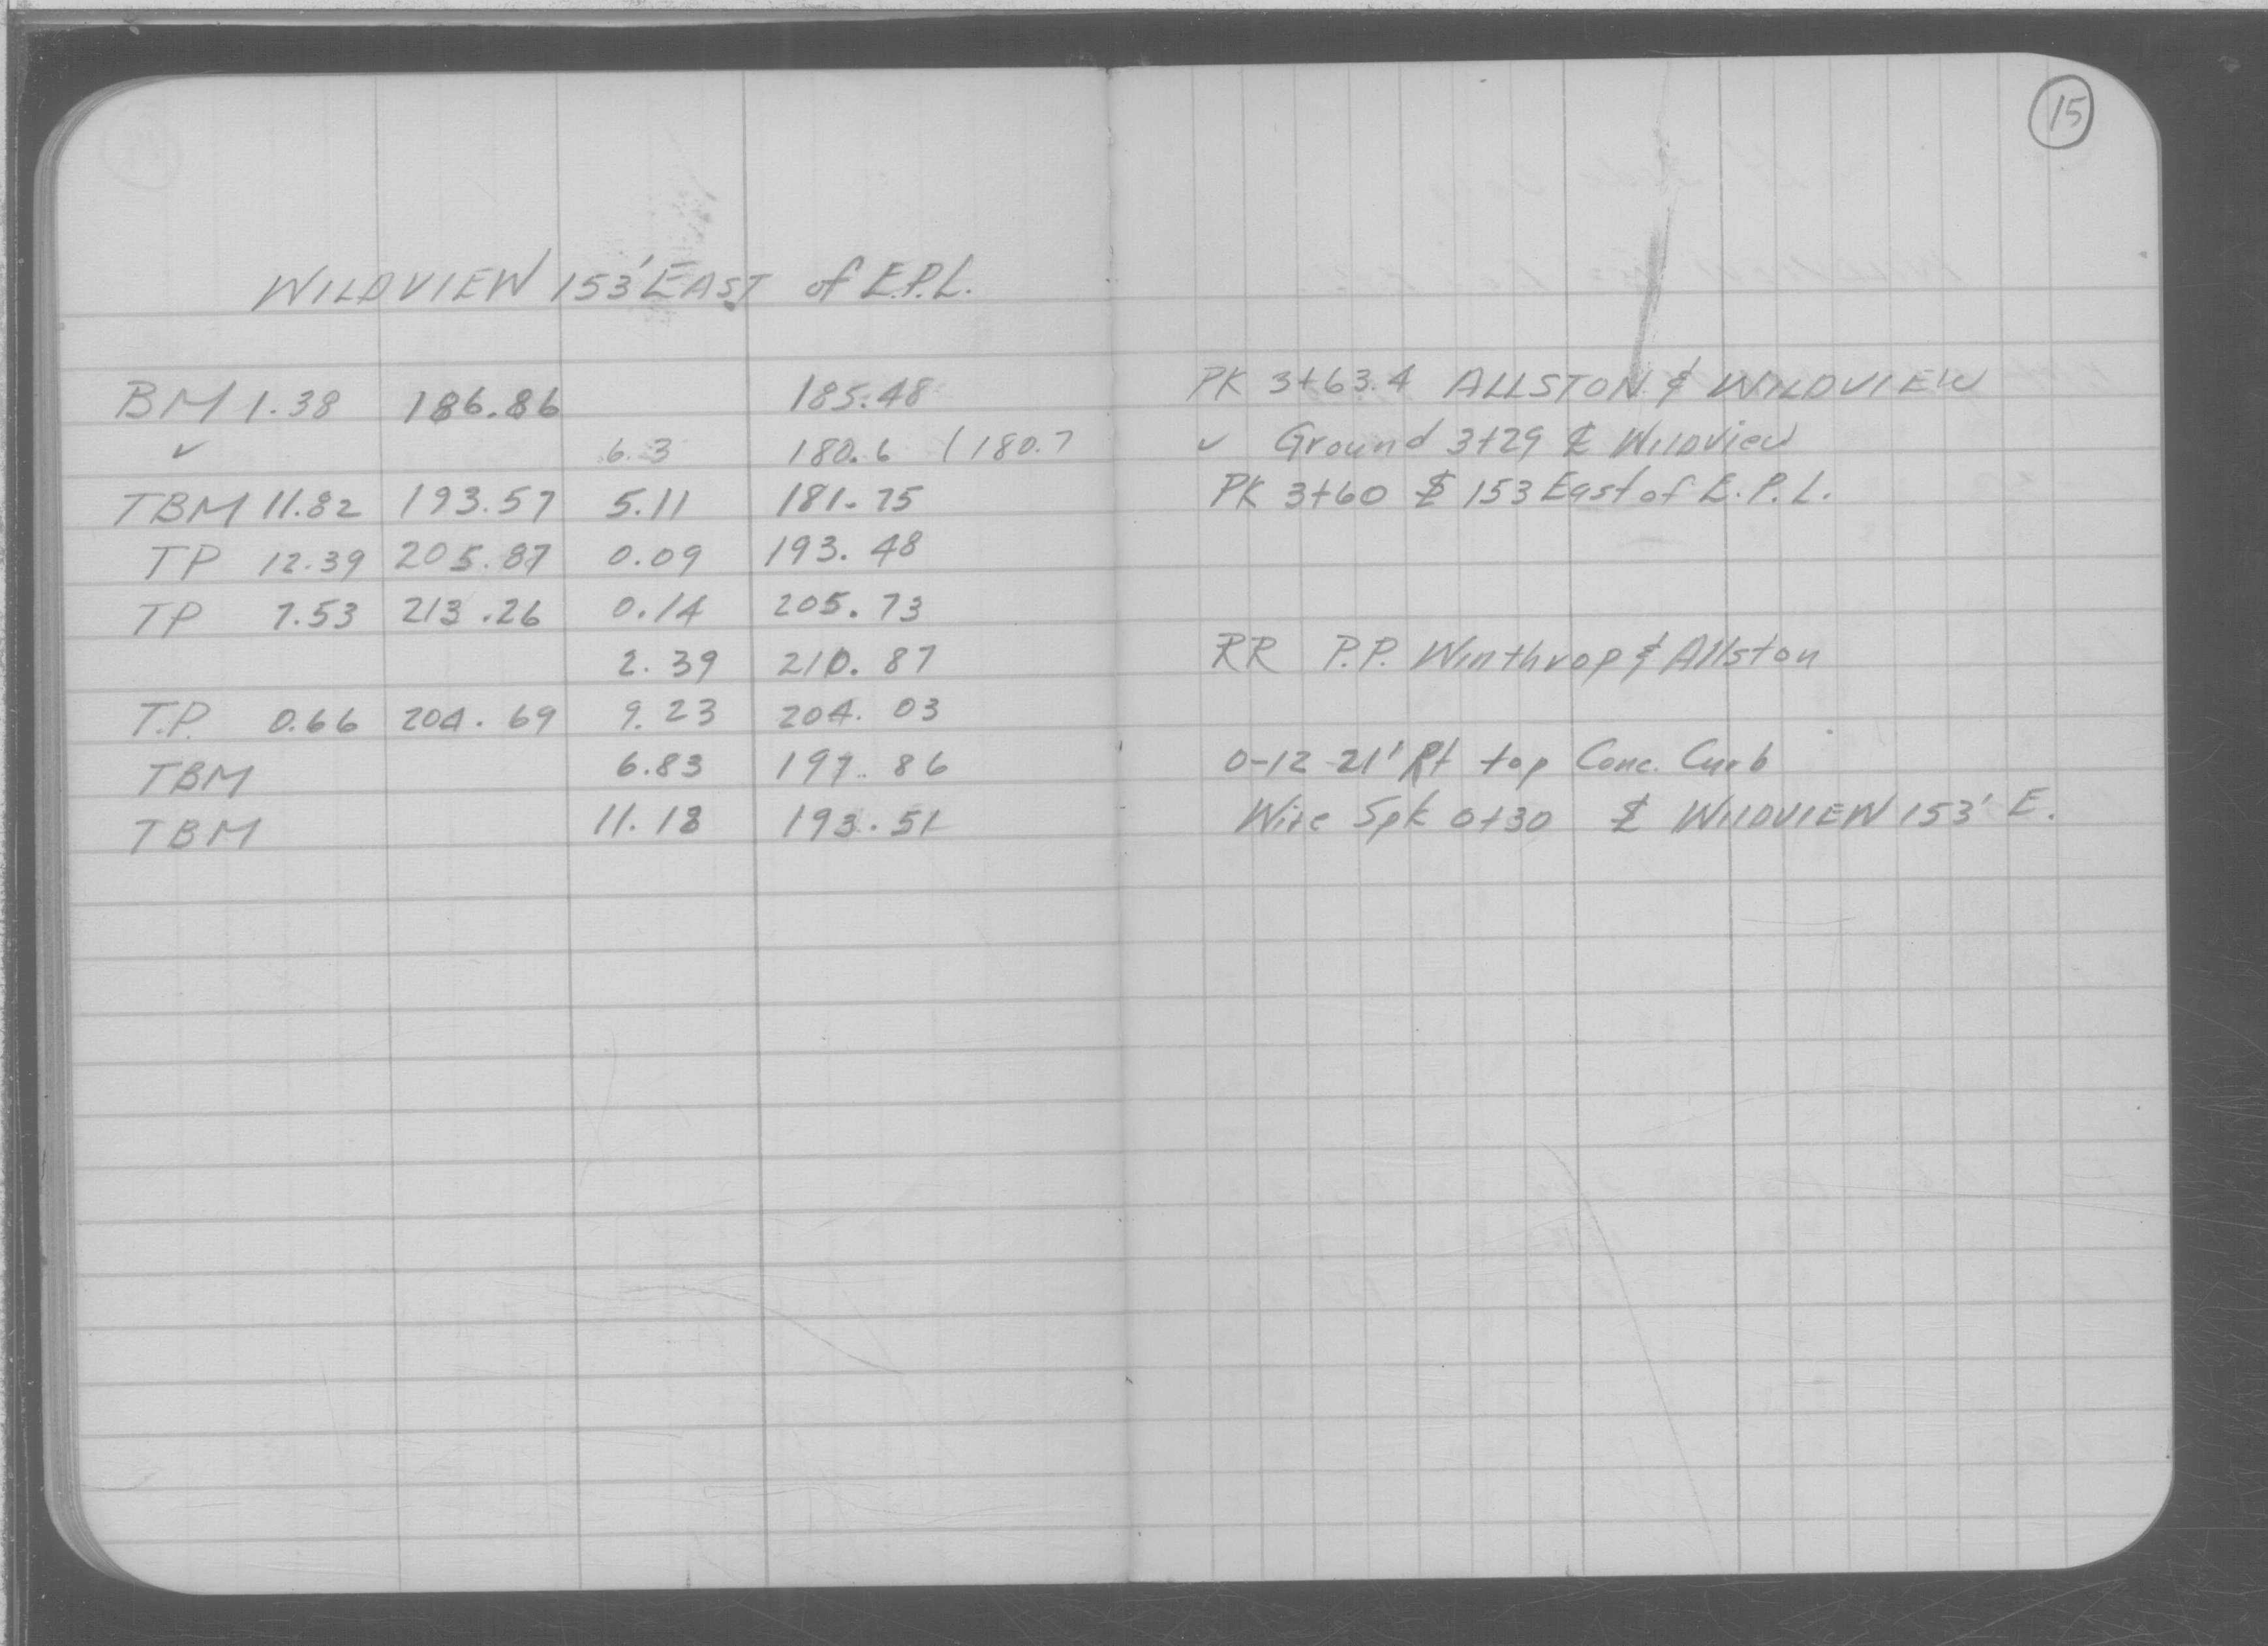 15
WILDVIEW 153' EAST of E.P.L.
BM 1.38 186.86 185.48 PK 3+63.4 ALLSTON & WILDVIEW
✓ 6.3 180.6 (180.7 ✓ Ground 3+29 ℄ Wildview
TBM 11.82 193.57 5.11 181.75 PK 3+60 ℄ 153 East of E.P.L.
TP 12.39 205.87 0.09 193.48
TP 7.53 213.26 0.14 205.73
2.39 210.87 RR P.P. Winthrop & Allston
T.P. 0.66 204.69 9.23 204.03
TBM 6.83 197.86 0-12 21' Rt top Conc. Curb
TBM 11.18 193.51 Wire Spk 0+30 ℄ WILDVIEW 153' E.